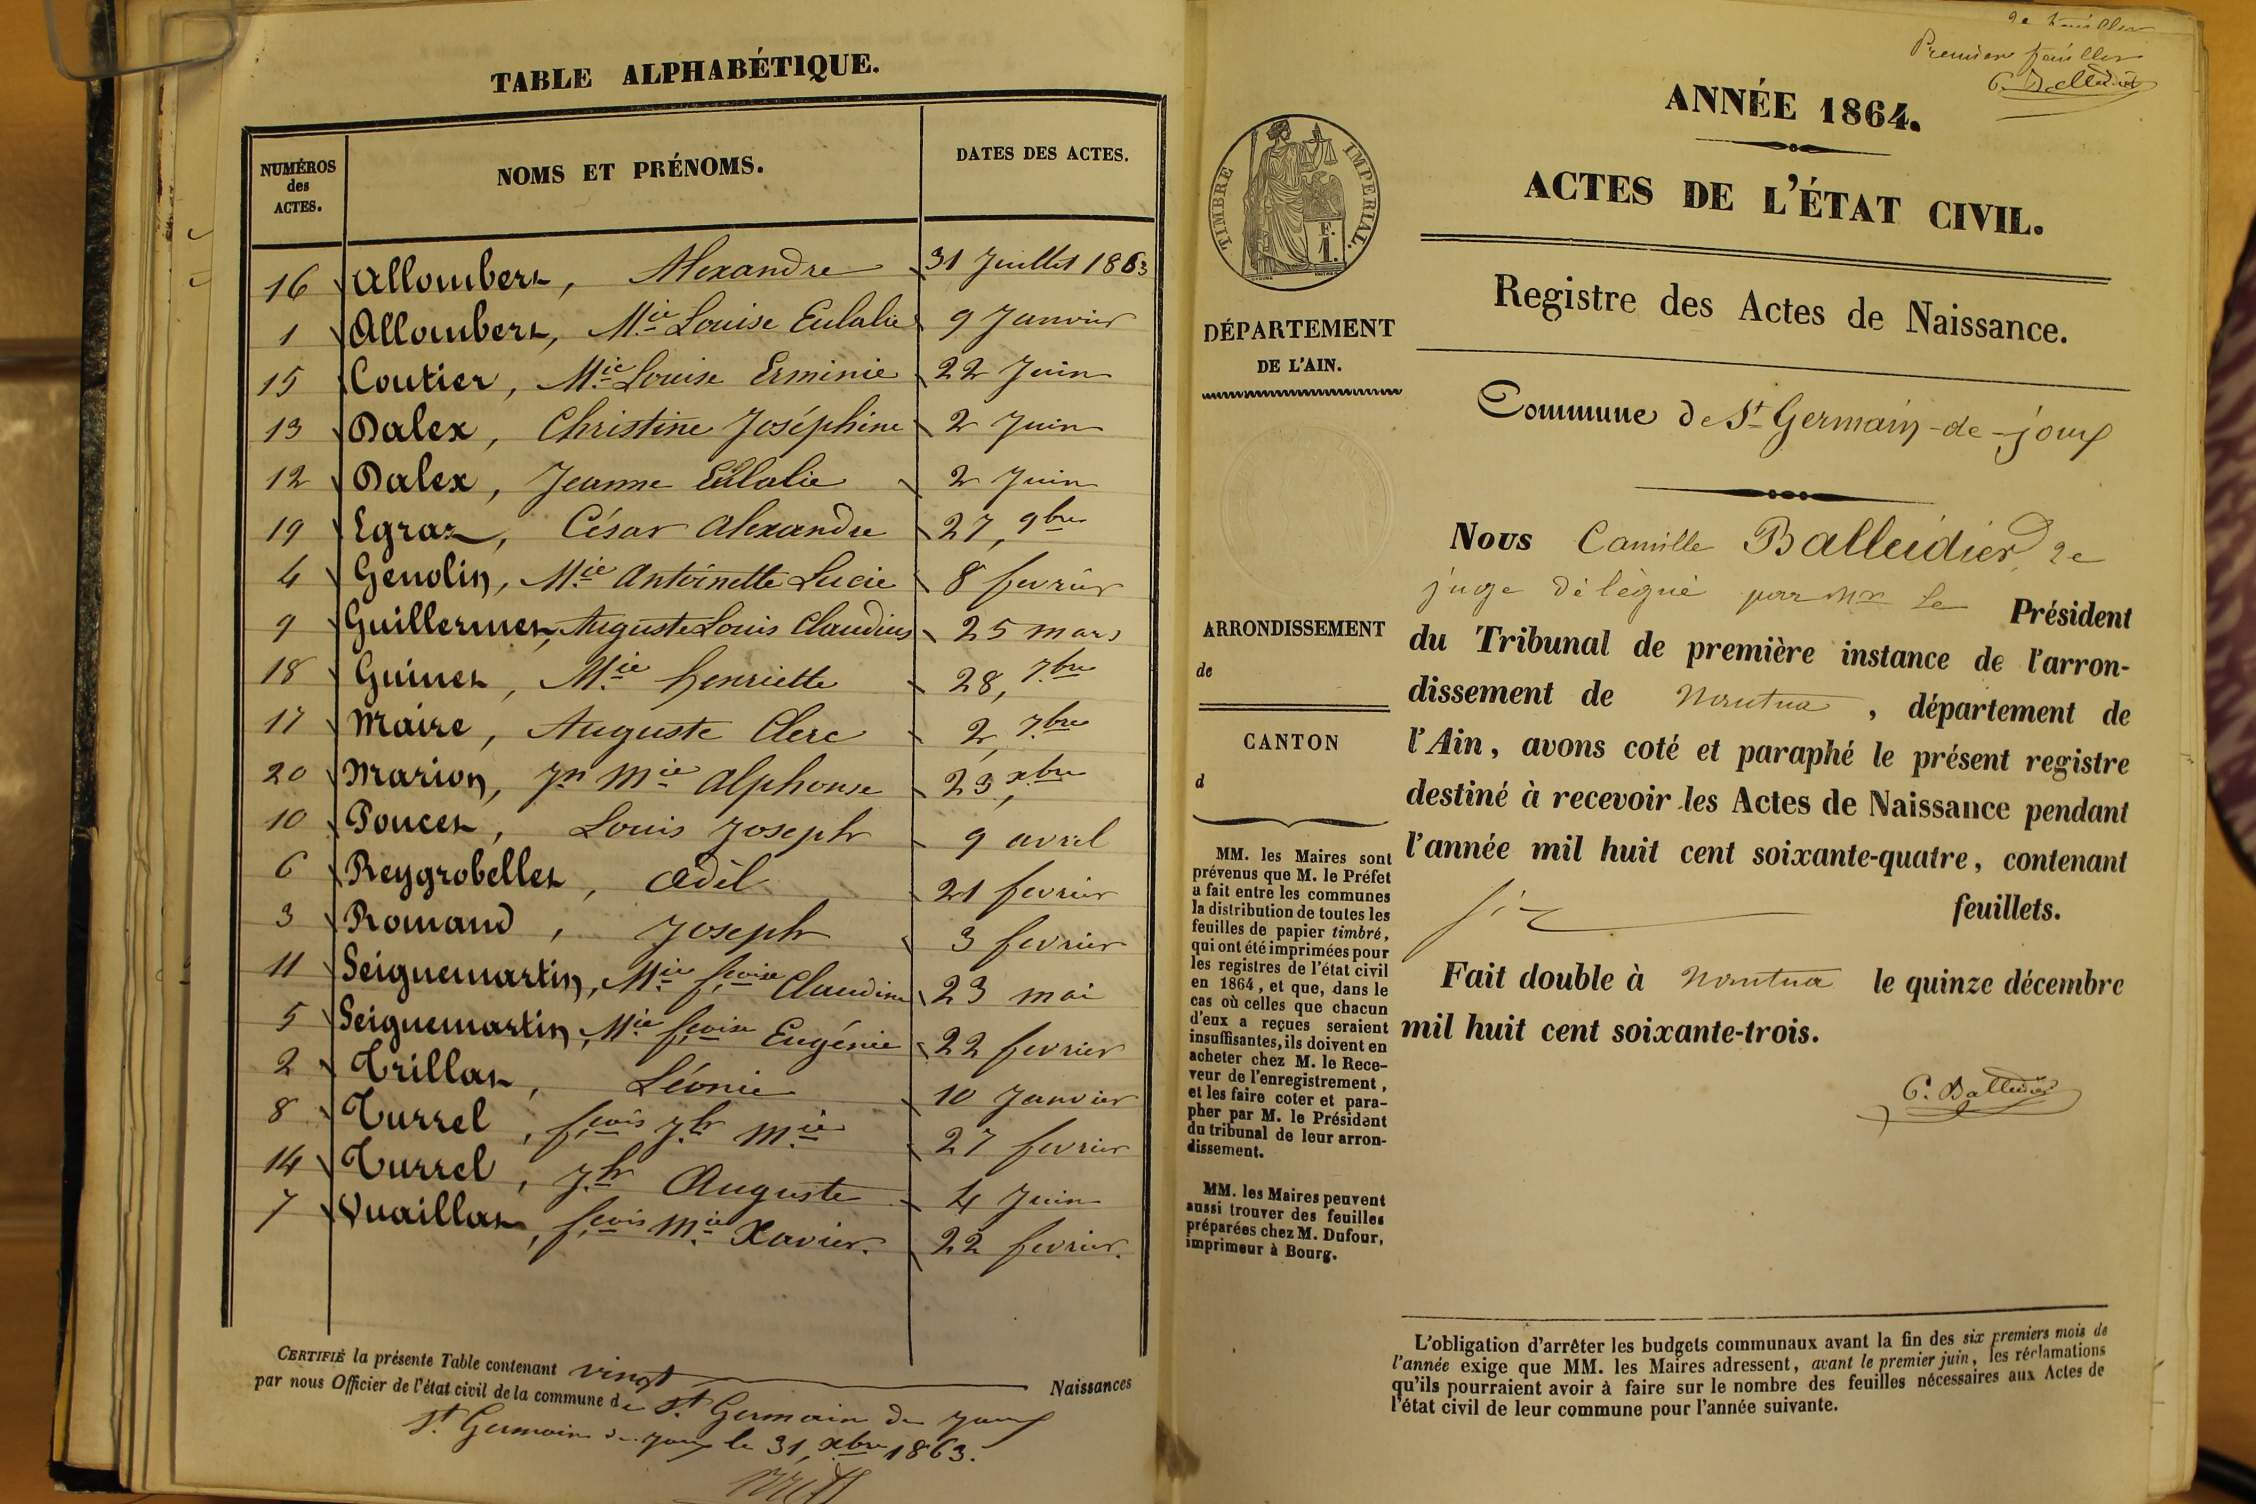 TABLE ALPHABÉTIQUE.
NUMÉROS des ACTES. NOMS ET PRÉNOMS. DATES DES ACTES.
16 Allombert, Alexandre 31 Juillet 1863
1 Allombert, Mie Louise Eulalie 9 Janvier
15 Coutier, Mie Louise Erminie 22 Juin
13 Dalex, Christine Joséphine 2 Juin
12 Dalex, Jeanne Eulalie 2 Juin
19 Egraz, César Alexandre 27, 9bre
4 Genolin, Mie Antoinette Lucie 8 fevrier
9 Guillermet, Auguste Louis Claudius 25 mars
18 Guinet, Mie henriette 28, 7bre
17 Maire, Auguste Clerc 2, 7bre
20 Marion, Jn Mie Alphonse 23, xbre
10 Poncet, Louis Joseph 9 avril
6 Reygrobellet, Adèl 21 fevrier
3 Romand, Joseph 3 fevrier
11 Seiguemartin, Mie fcoise Claudine 23 mai
5 Seiguemartin, Mie fcoise Eugénie 22 fevrier
2 Trillat, Léonie 10 Janvier
8 Turrel, fcois Jh Mie 27 fevrier
14 Turrel, Jh Auguste 4 Juin
7 Vuaillat, fcois Mie Xavier. 22 fevrier.
CERTIFIÉ la présente Table contenant vingt Naissances
par nous Officier de l'état civil de la commune de St Germain de Joux
St Germain de Joux le 31, xbre 1863.
Première feuillet
C. Balleidier
ANNÉE 1864.
ACTES DE L'ÉTAT CIVIL.
Registre des Actes de Naissance.
Commune de St Germain-de-joux
TIMBRE IMPÉRIAL.
F. 1.
DÉPARTEMENT
DE L'AIN.
ARRONDISSEMENT
de
CANTON
d
MM. les Maires sont
prévenus que M. le Préfet
a fait entre les communes
la distribution de toutes les
feuilles de papier timbré,
qui ont été imprimées pour
les registres de l'état civil
en 1864, et que, dans le
cas où celles que chacun
d'eux a reçues seraient
insuffisantes, ils doivent en
acheter chez M. le Rece-
veur de l'enregistrement,
et les faire coter et para-
pher par M. le Président
du tribunal de leur arron-
dissement.
MM. les Maires peuvent
aussi trouver des feuilles
préparées chez M. Dufour,
imprimeur à Bourg.
Nous Camille Balleidier
juge délégué par Mr Le Président
du Tribunal de première instance de l'arron-
dissement de Nantua, département de
l'Ain, avons coté et paraphé le présent registre
destiné à recevoir les Actes de Naissance pendant
l'année mil huit cent soixante-quatre, contenant
six feuillets.
Fait double à Nantua le quinze décembre
mil huit cent soixante-trois.
C. Balleidier
L'obligation d'arrêter les budgets communaux avant la fin des six premiers mois de
l'année exige que MM. les Maires adressent, avant le premier juin, les réclamations
qu'ils pourraient avoir à faire sur le nombre des feuilles nécessaires aux Actes de
l'état civil de leur commune pour l'année suivante.